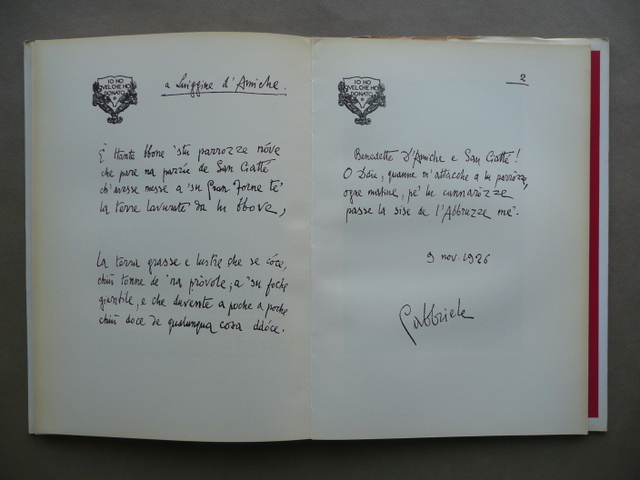 IO HO
QVEL CHE HO
DONATO
a Luiggine d'Amiche.
È ttante bbone 'stu parrozze nòve
che pare na pazzíe de San Ciattè
ch'avesse messe a 'su gran forne tè'
la terre lavurate da lu bbove,
La terra grasse e lustre che se còce,
chiù tonne de 'na pròvole, a 'su foche
gientile, e che duvente a poche a poche
chiù doce de qualunqua cosa ddóce.
IO HO
QVEL CHE HO
DONATO
2
Benedette D'Amiche e San Ciattè!
O Ddie, quanne m'attacche a lu parrózze,
ogne matine, pe' lu cannaròzze
passe la sise de l'Abbruzze me'.
9 nov. 1926
Gabbriele